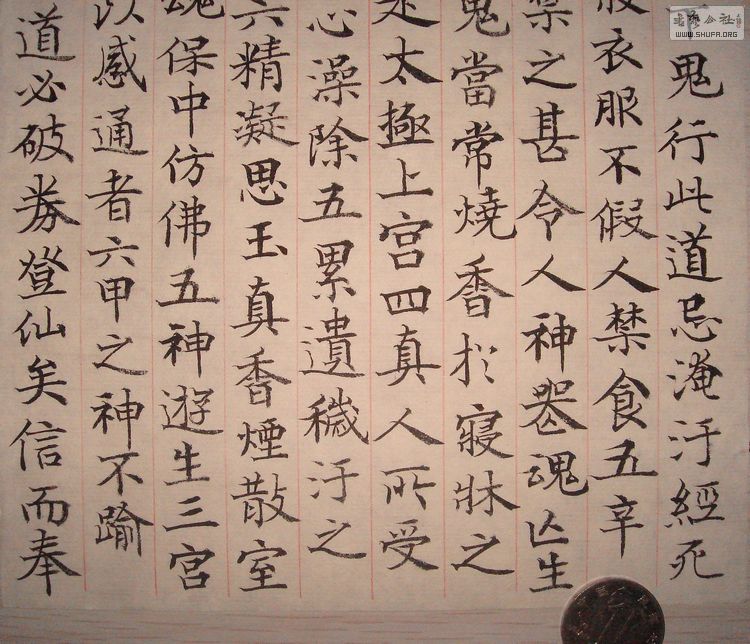 鬼行此道忌淹汙經死
衣服不假人禁食五辛
禁之甚令人神喪魂亡生
鬼當常燒香於寢牀之
是太極上宮四真人所受
心澡除五累遺穢汙之
六精凝思玉真香煙散室
魂保中仿佛五神遊生三宮
以感通者六甲之神不踰
道必破券登仙矣信而奉
WWW.SHUFA.ORG